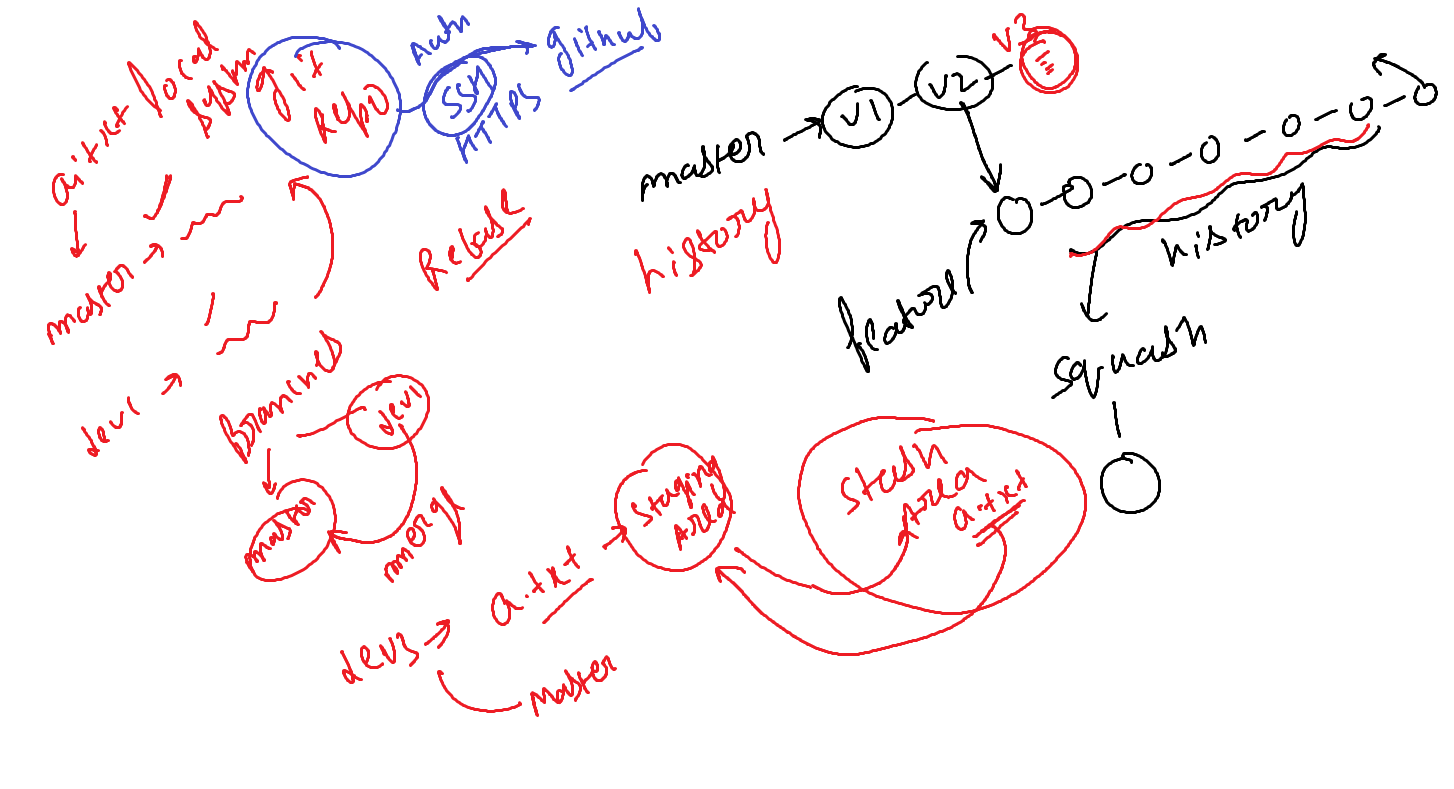 a.txt local
system
git
Repo
Auth
SSH
HTTPS
github
master
dev1
Branches
dev1
master
merge
Rebase
master
V1
V2
V3
history
feature
history
squash
dev3
a.txt
master
Staging
Area
Stash
Area
a.txt